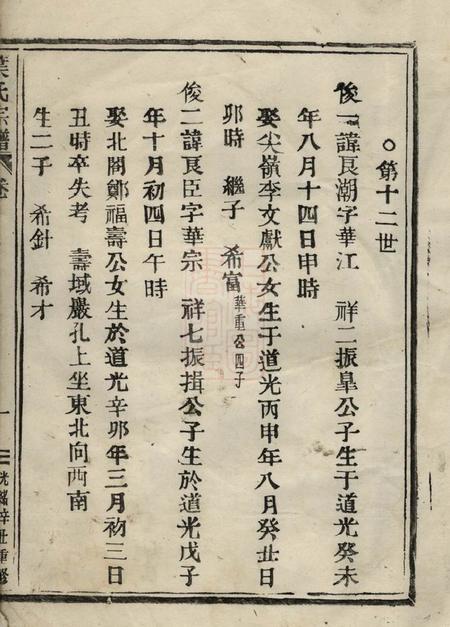 ○第十二世
俊一諱良潮字華江 祥二振臯公子生于道光癸未
年八月十四日申時
娶尖嶺李文獻公女生于道光丙申年八月癸廿日
卯時 繼子 希富華重公四子
俊二諱良臣字華宗 祥七振揖公子生於道光戊子
年十月初四日午時
娶北閣鄭福壽公女生於道光辛卯年三月初三日
丑時卒失考 壽域嚴孔上坐東北向西南
生二子 希針 希才
葉氏宗譜 卷
一
光緒辛丑重修